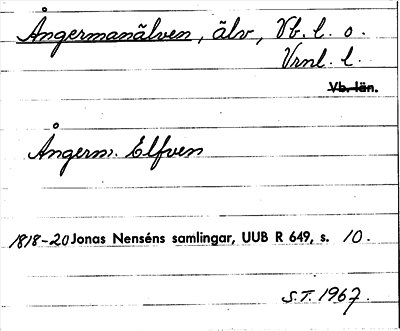 Ångermanälven, älv, Vb. l. o.
Vrnl. l.
Vb. län.
Ångerm. Elfven
1818-20 Jonas Nenséns samlingar, UUB R 649, s. 10.
S.T. 1967.